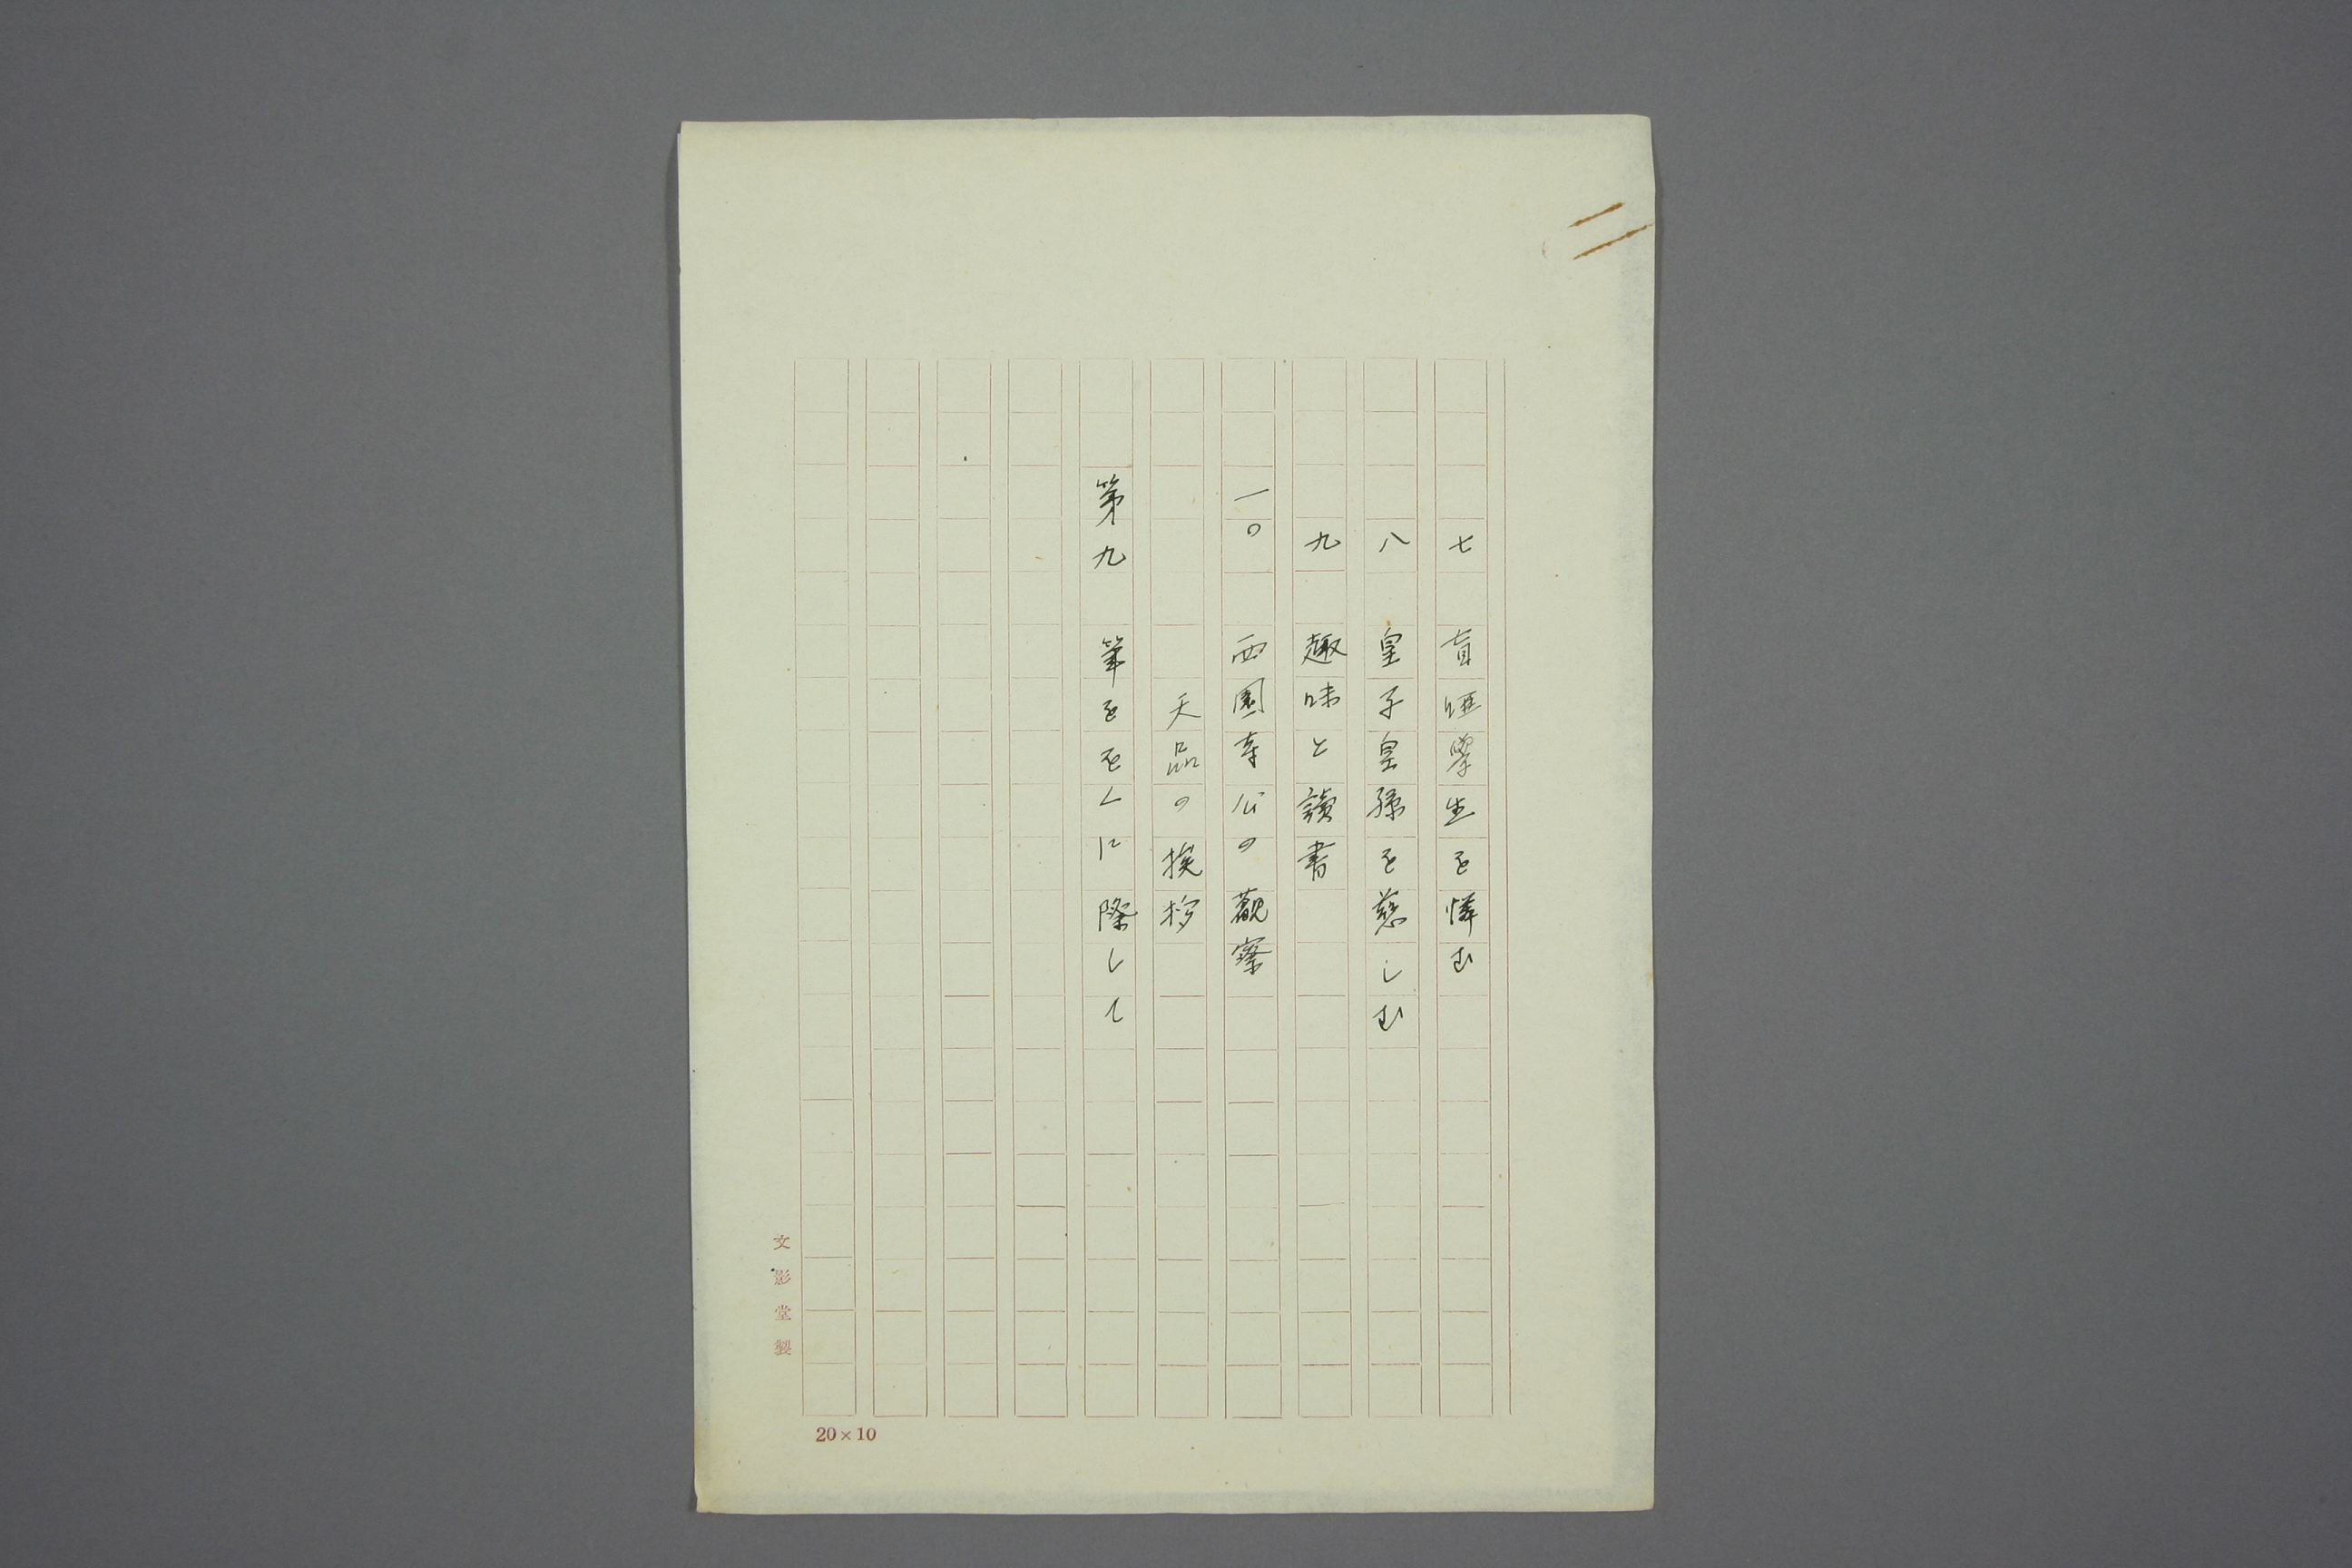 七　盲啞學生を憐む
八　皇子皇孫を慈しむ
九　趣味と讀書
一〇　西園寺公の觀察
天品の挨拶
第九　筆ををくに際して
文影堂製
20×10